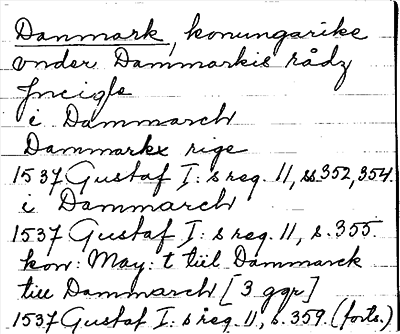 Danmark, konungarike
vnder Dammarkis rådz
Jncigle
i Dammarch
Dammarkx rige
1537 Gustaf I:s reg. 11, ss. 352, 354.
i Dammarch
1537 Gustaf I:s reg. 11, s. 355
kon: May: t tiil Dammarck
till Dammarch [3 ggr]
1537 Gustaf I:s reg. 11, s. 359 (forts.)